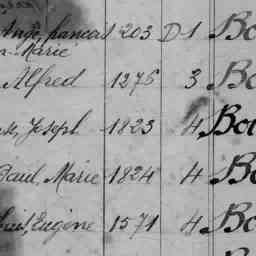 Ange, francois 203 D1 Bo
n-Marie
Alfred 1275 3 Bo
Joseph 1823 4 Bou
Paul, Marie 1824 4 Bo
Louis, Eugène 1571 4 Bo